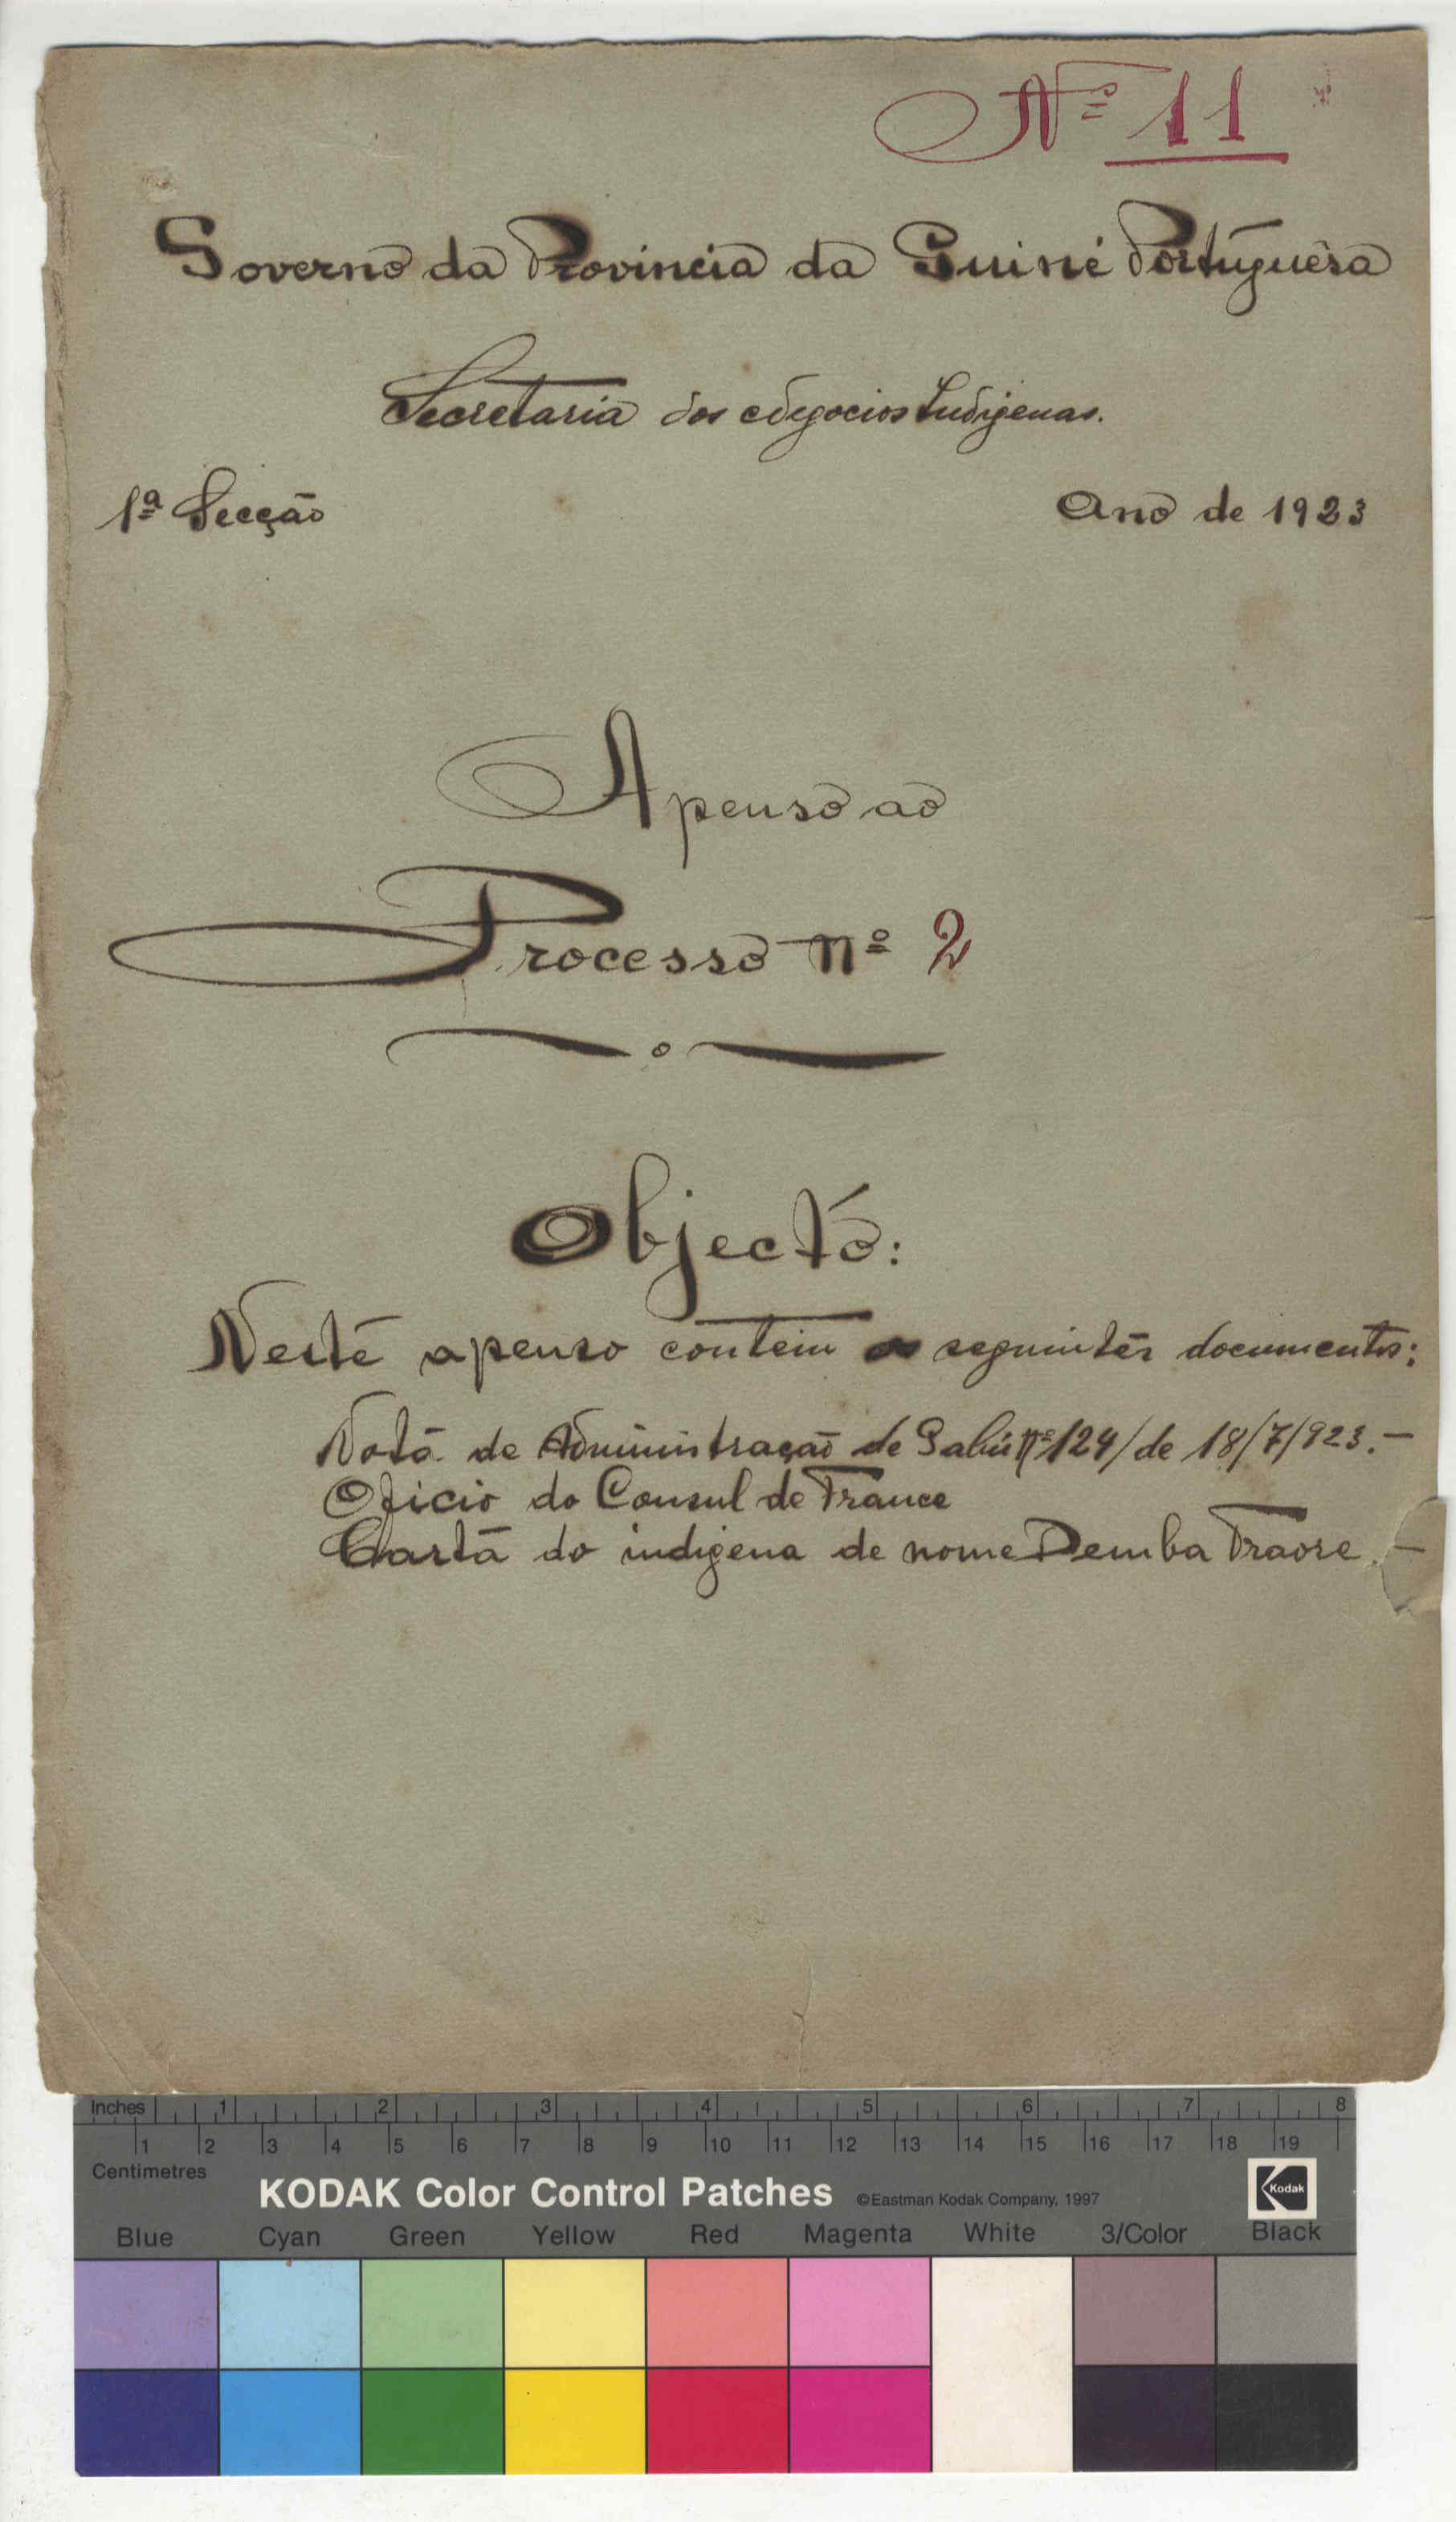 Nº 11
Governo da Provincia da Guiné Portuguêsa
Secretaria dos Negocios Indigenas.
1ª Secção
Ano de 1923
Apenso ao
Processo nº 2
Objecto:
Neste apenso contem os seguintes documentos:
Nota de Administração de Gabú nº 124/de 18/7/923.-
Oficio do Consul de France
Carta do indigena de nome Demba Traore.-
Inches 1 2 3 4 5 6 7 8
1 2 3 4 5 6 7 8 9 10 11 12 13 14 15 16 17 18 19
Centimetres
KODAK Color Control Patches ©Eastman Kodak Company, 1997 Kodak
Blue Cyan Green Yellow Red Magenta White 3/Color Black